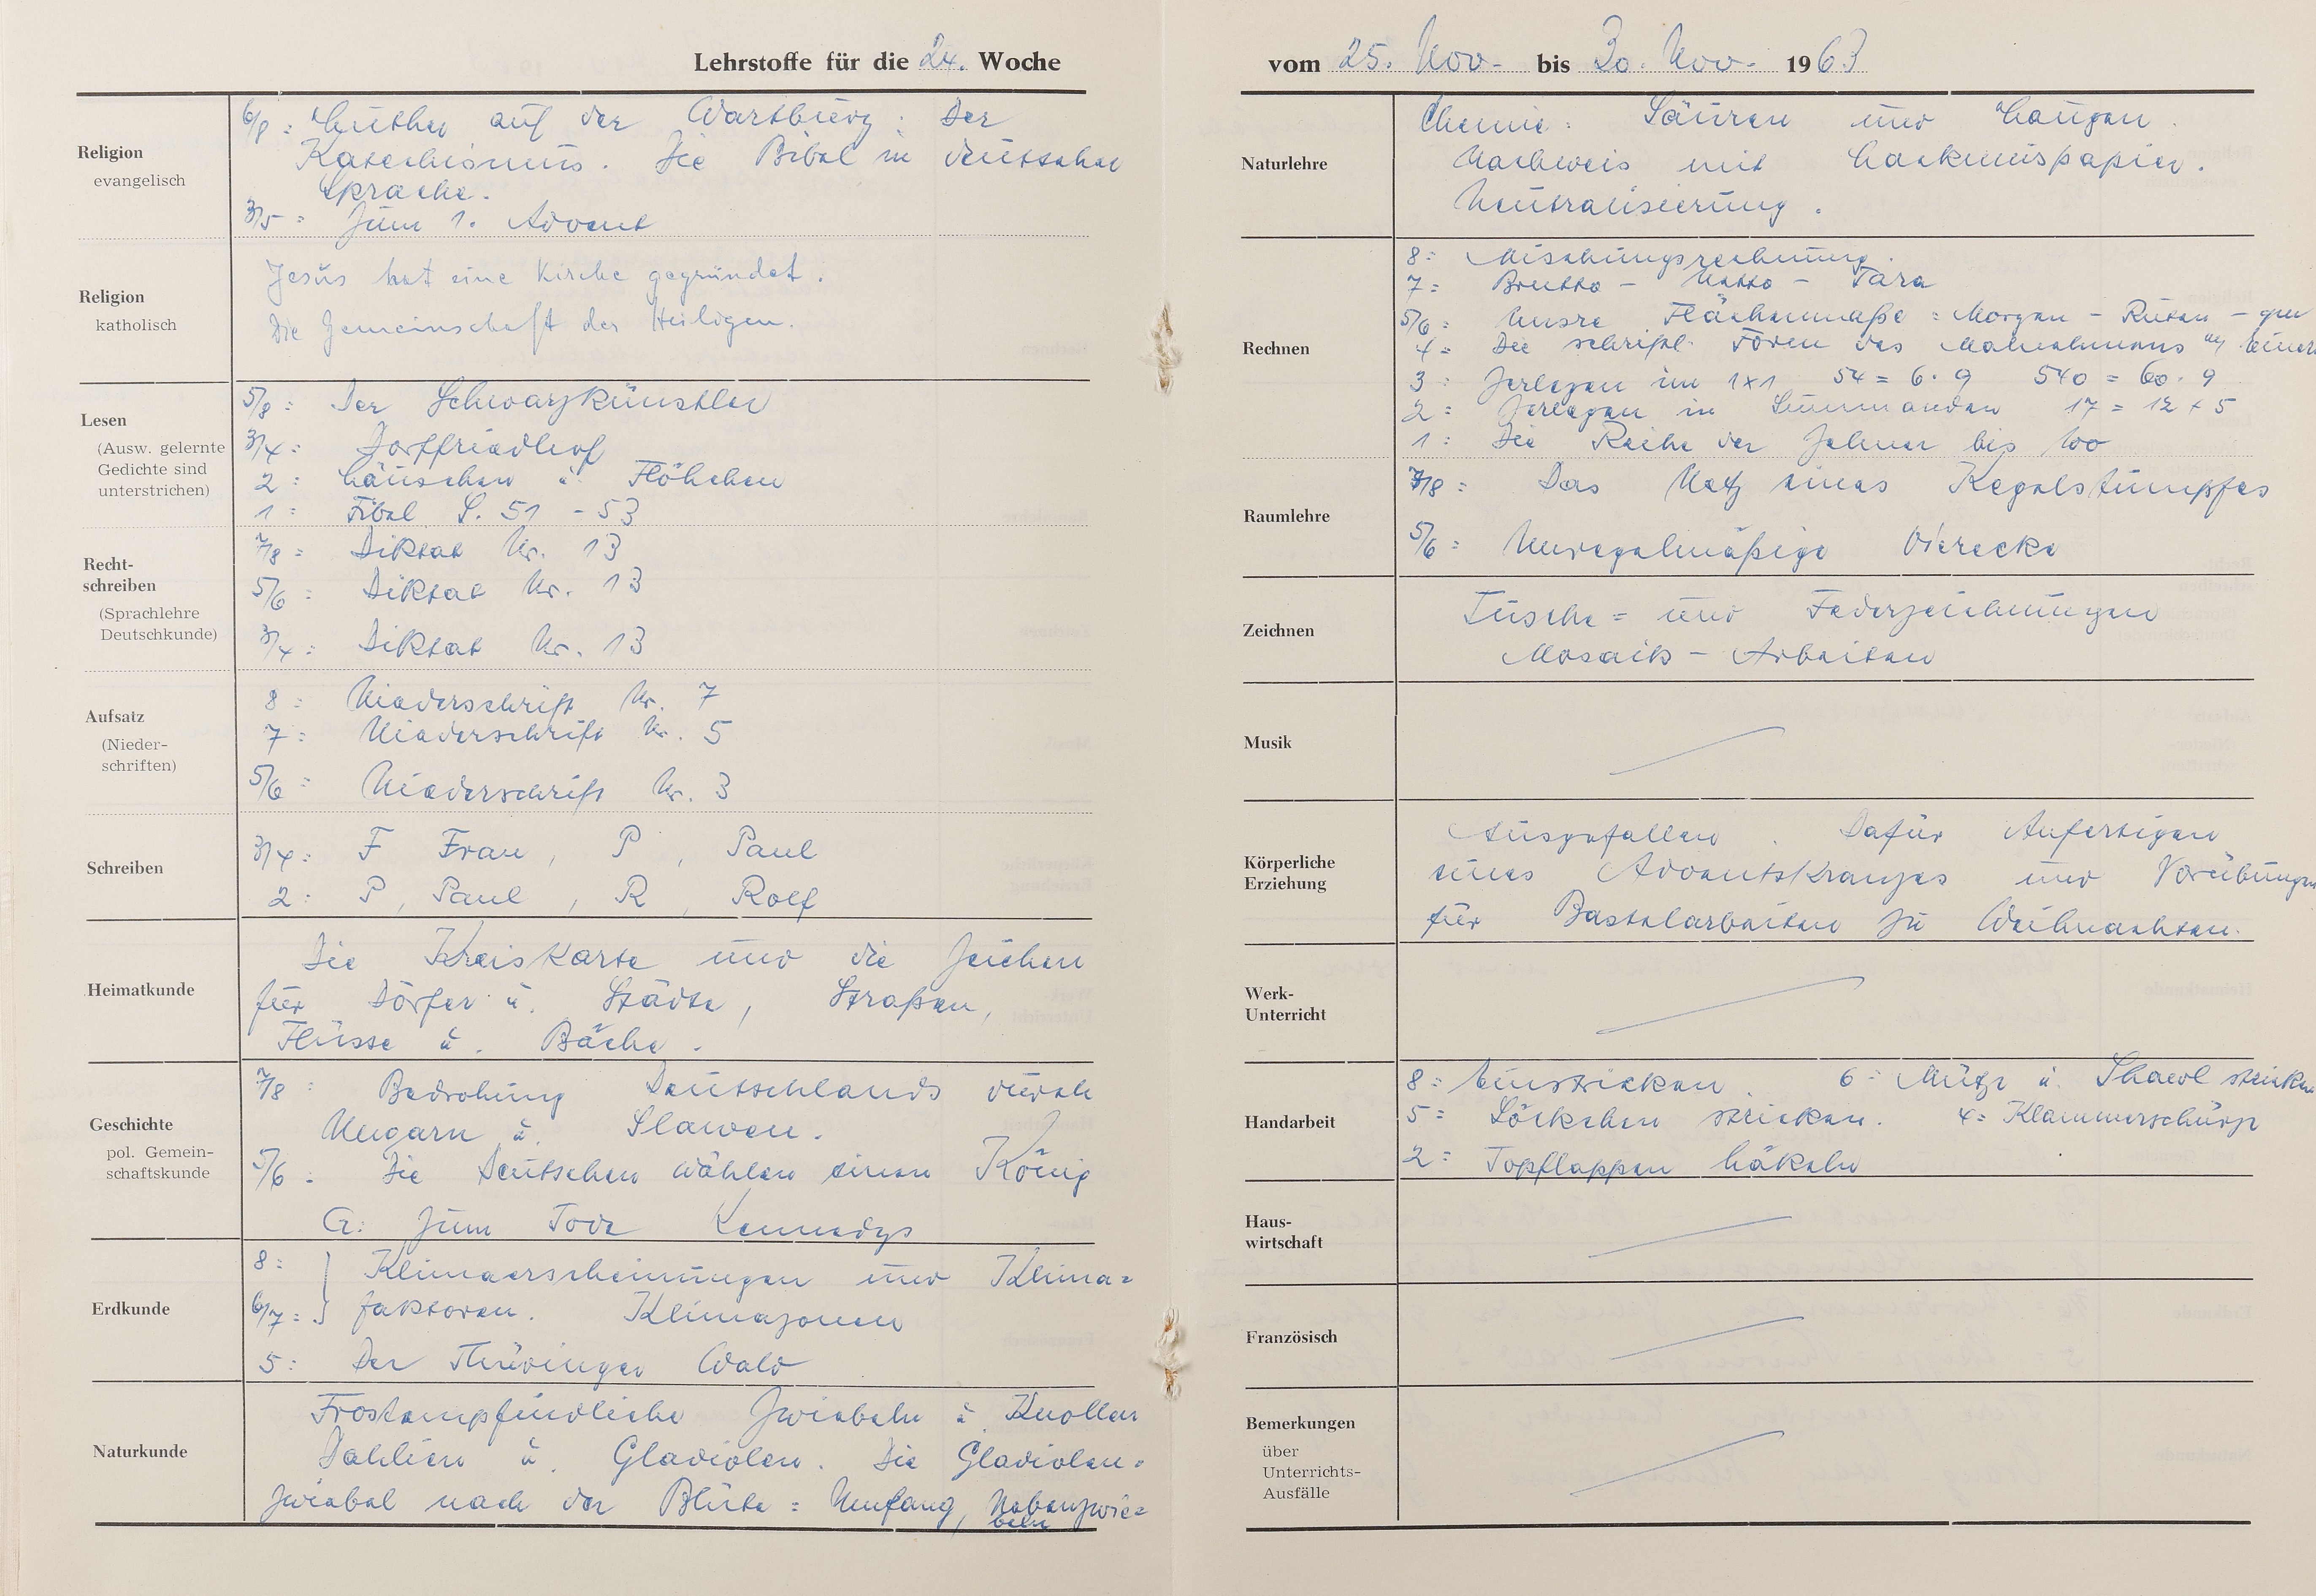 Lehrstoffe für die 24. Woche
Religion
evangelisch
6/8: Luther auf der Wartburg. Der
Katechismus. Die Bibel in deutscher
Sprache.
3/5: Zum 1. Advent
Religion
katholisch
Jesus hat eine Kirche gegründet.
Die Gemeinschaft der Heiligen.
Lesen
(Ausw. gelernte
Gedichte sind
unterstrichen)
5/8: Der Schwarzkünstler
3/4: Dorffriedhof
2: Läuschen u. Flöhchen
1: Fibel S. 51 - 53
Recht-
schreiben
(Sprachlehre
Deutschkunde)
7/8: Diktat Nr. 13
5/6: Diktat Nr. 13
3/4: Diktat Nr. 13
Aufsatz
(Nieder-
schriften)
8: Niederschrift Nr. 7
7: Niederschrift Nr. 5
5/6: Niederschrift Nr. 3
Schreiben
3/4: F Frau, P, Paul
2: P, Paul, R, Rolf
Heimatkunde
Die Kreiskarte und die Zeichen
für Dörfer u. Städte, Straßen,
Flüsse u. Bäche.
Geschichte
pol. Gemein-
schaftskunde
7/8: Bedrohung Deutschlands durch
Ungarn u. Slawen.
5/6: Die Deutschen wählen einen König
G: Zum Tode Kennedys
Erdkunde
8: } Klimaerscheinungen und Klima=
6/7: } faktoren. Klimazonen
5: Der Thüringer Wald
Naturkunde
Frostempfindliche Zwiebeln u. Knollen
Dahlien u. Gladiolen. Die Gladiolen=
zwiebel nach der Blüte: Umfang, Nebenzwie=
beln
vom 25. Nov. bis 30. Nov. 1963
Naturlehre
Chemie: Säuren und Laugen.
Nachweis mit Lackmuspapier.
Neutralisierung.
Rechnen
8: Mischungsrechnung.
7: Brutto - Netto - Tara
5/6: Unsre Flächenmaße: Morgen - Ruten - qm
4: Die schriftl. Form des Malnehmens
3: Zerlegen im 1x1 54 = 6·9 540 = 60·9
2: Zerlegen in Summanden 17 = 12 + 5
1: Die Reihe der Zehner bis 100
Raumlehre
7/8: Das Netz eines Kegelstumpfes
5/6: Unregelmäßige Vierecke
Zeichnen
Tusche= und Federzeichnungen
Mosaik - Arbeiten
Musik
Körperliche
Erziehung
Ausgefallen. Dafür Anfertigen
eines Adventskranzes und Vorübungen
für Bastelarbeiten zu Weihnachten.
Werk-
Unterricht
Handarbeit
8: Einstricken. 6: Mütze u. Shawl stricken
5: Söckchen stricken. 4: Klammerschürze
2: Topflappen häkeln
Haus-
wirtschaft
Französisch
Bemerkungen
über
Unterrichts-
Ausfälle